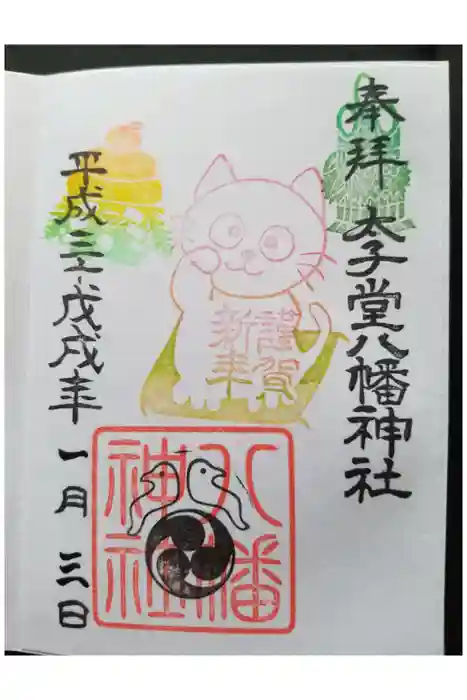 奉拝 太子堂八幡神社
謹賀
新年
平成三十戊戌年 一月 三日
八幡
神社